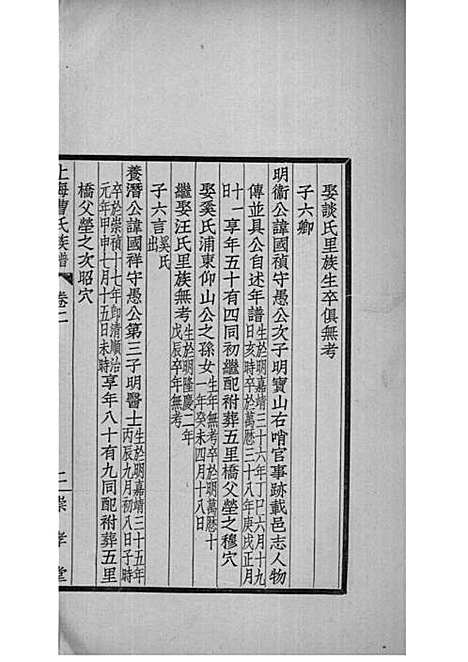 娶談氏里族生卒俱無考
子六卿
明衞公諱國禎守愚公次子明寶山右哨官事跡載邑志人物
傳並具公自述年譜生於明嘉靖三十六年丁巳六月十九日亥時卒於萬曆三十八年庚戌正月
十一日享年五十有四同初繼配祔葬五里橋父塋之穆穴
娶奚氏浦東仰山公之孫女生年無考卒於萬曆十一年癸未四月十八日
繼娶汪氏里族無考生於明隆慶二年戊辰卒年無考
子六言奚氏出
養潛公諱國祥守愚公第三子明醫士生於明嘉靖三十五年丙辰九月初八日子時
卒於崇禎十七年卽清順治元年甲申七月十五日未時享年八十有九同配祔葬五里
橋父塋之次昭穴
上海曹氏族譜 卷二 二 崇孝堂